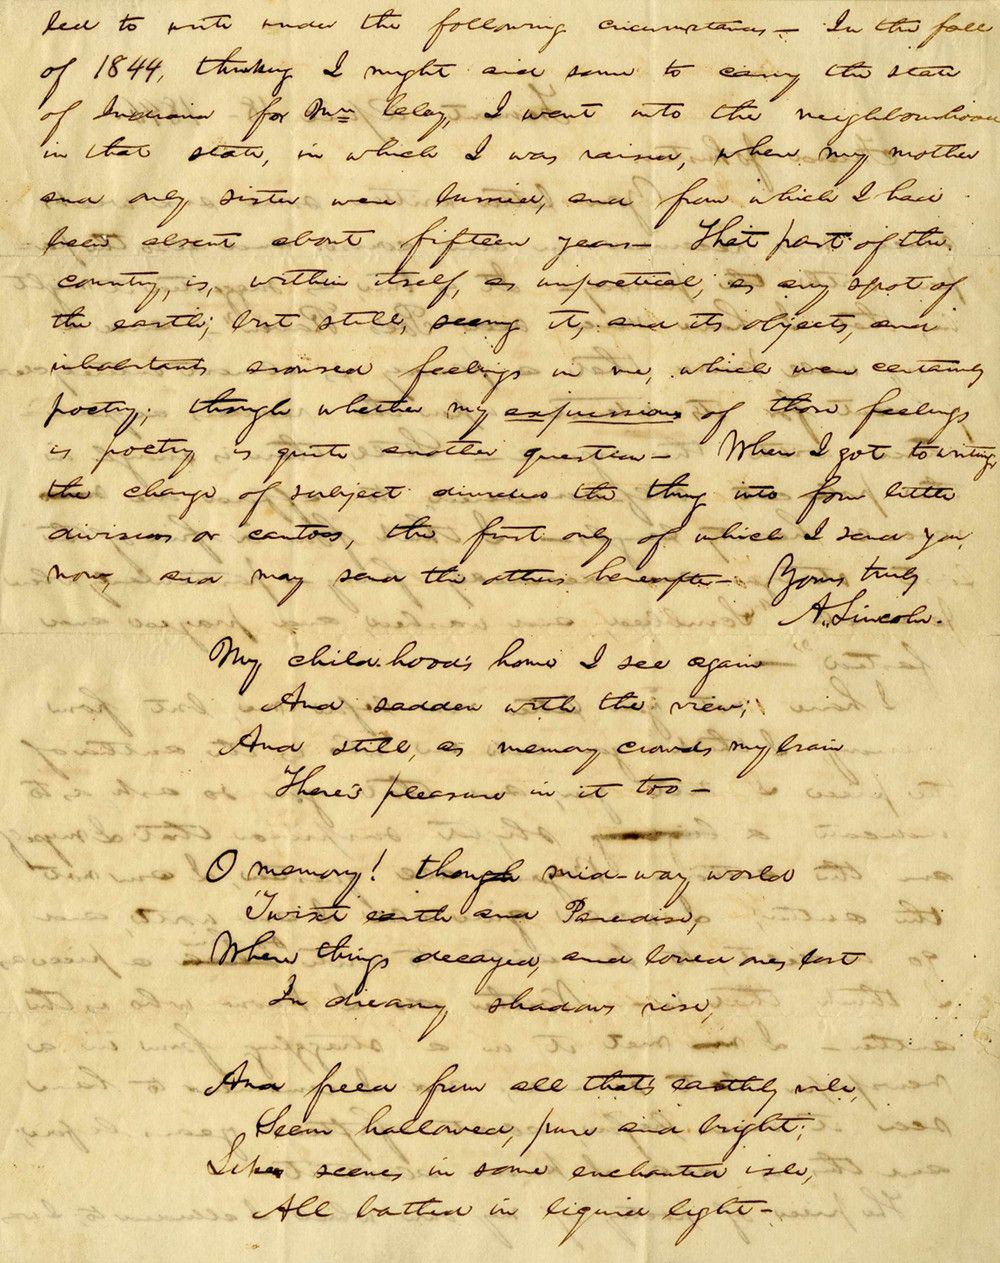 led to write under the following circumstances— In the fall
of 1844, thinking I might aid some to carry the state
of Indiana for Mr. Clay, I went into the neighbourhood
in that state, in which I was raised, where my mother
and only sister were burried, and from which I had
been absent about fifteen years— That part of the
country, is, within itself, as unpoetical, as any spot of
the earth; but still, seeing it, and its objects, and
inhabitants aroused feelings in me, which were certainly
poetry; though whether my expressions of those feelings
is poetry is quite another question— When I got to writing,
the change of subject divided the thing into four little
divisions or cantos, the first only of which I send you
now, and may send the others hereafter— Yours truly
A. Lincoln.
My child-hood's home I see again
And sadden with the view;
And still, as memory crowds my brain
There's pleasure in it too—
O memory! though mid-way world
'Twixt earth and Paradise,
Where things decayed, and loved ones lost
In dreamy shadows rise,
And freed from all that's earthly vile,
Seem hallowed, pure and bright;
Like scenes in some enchanted isle,
All bathed in liquid light—